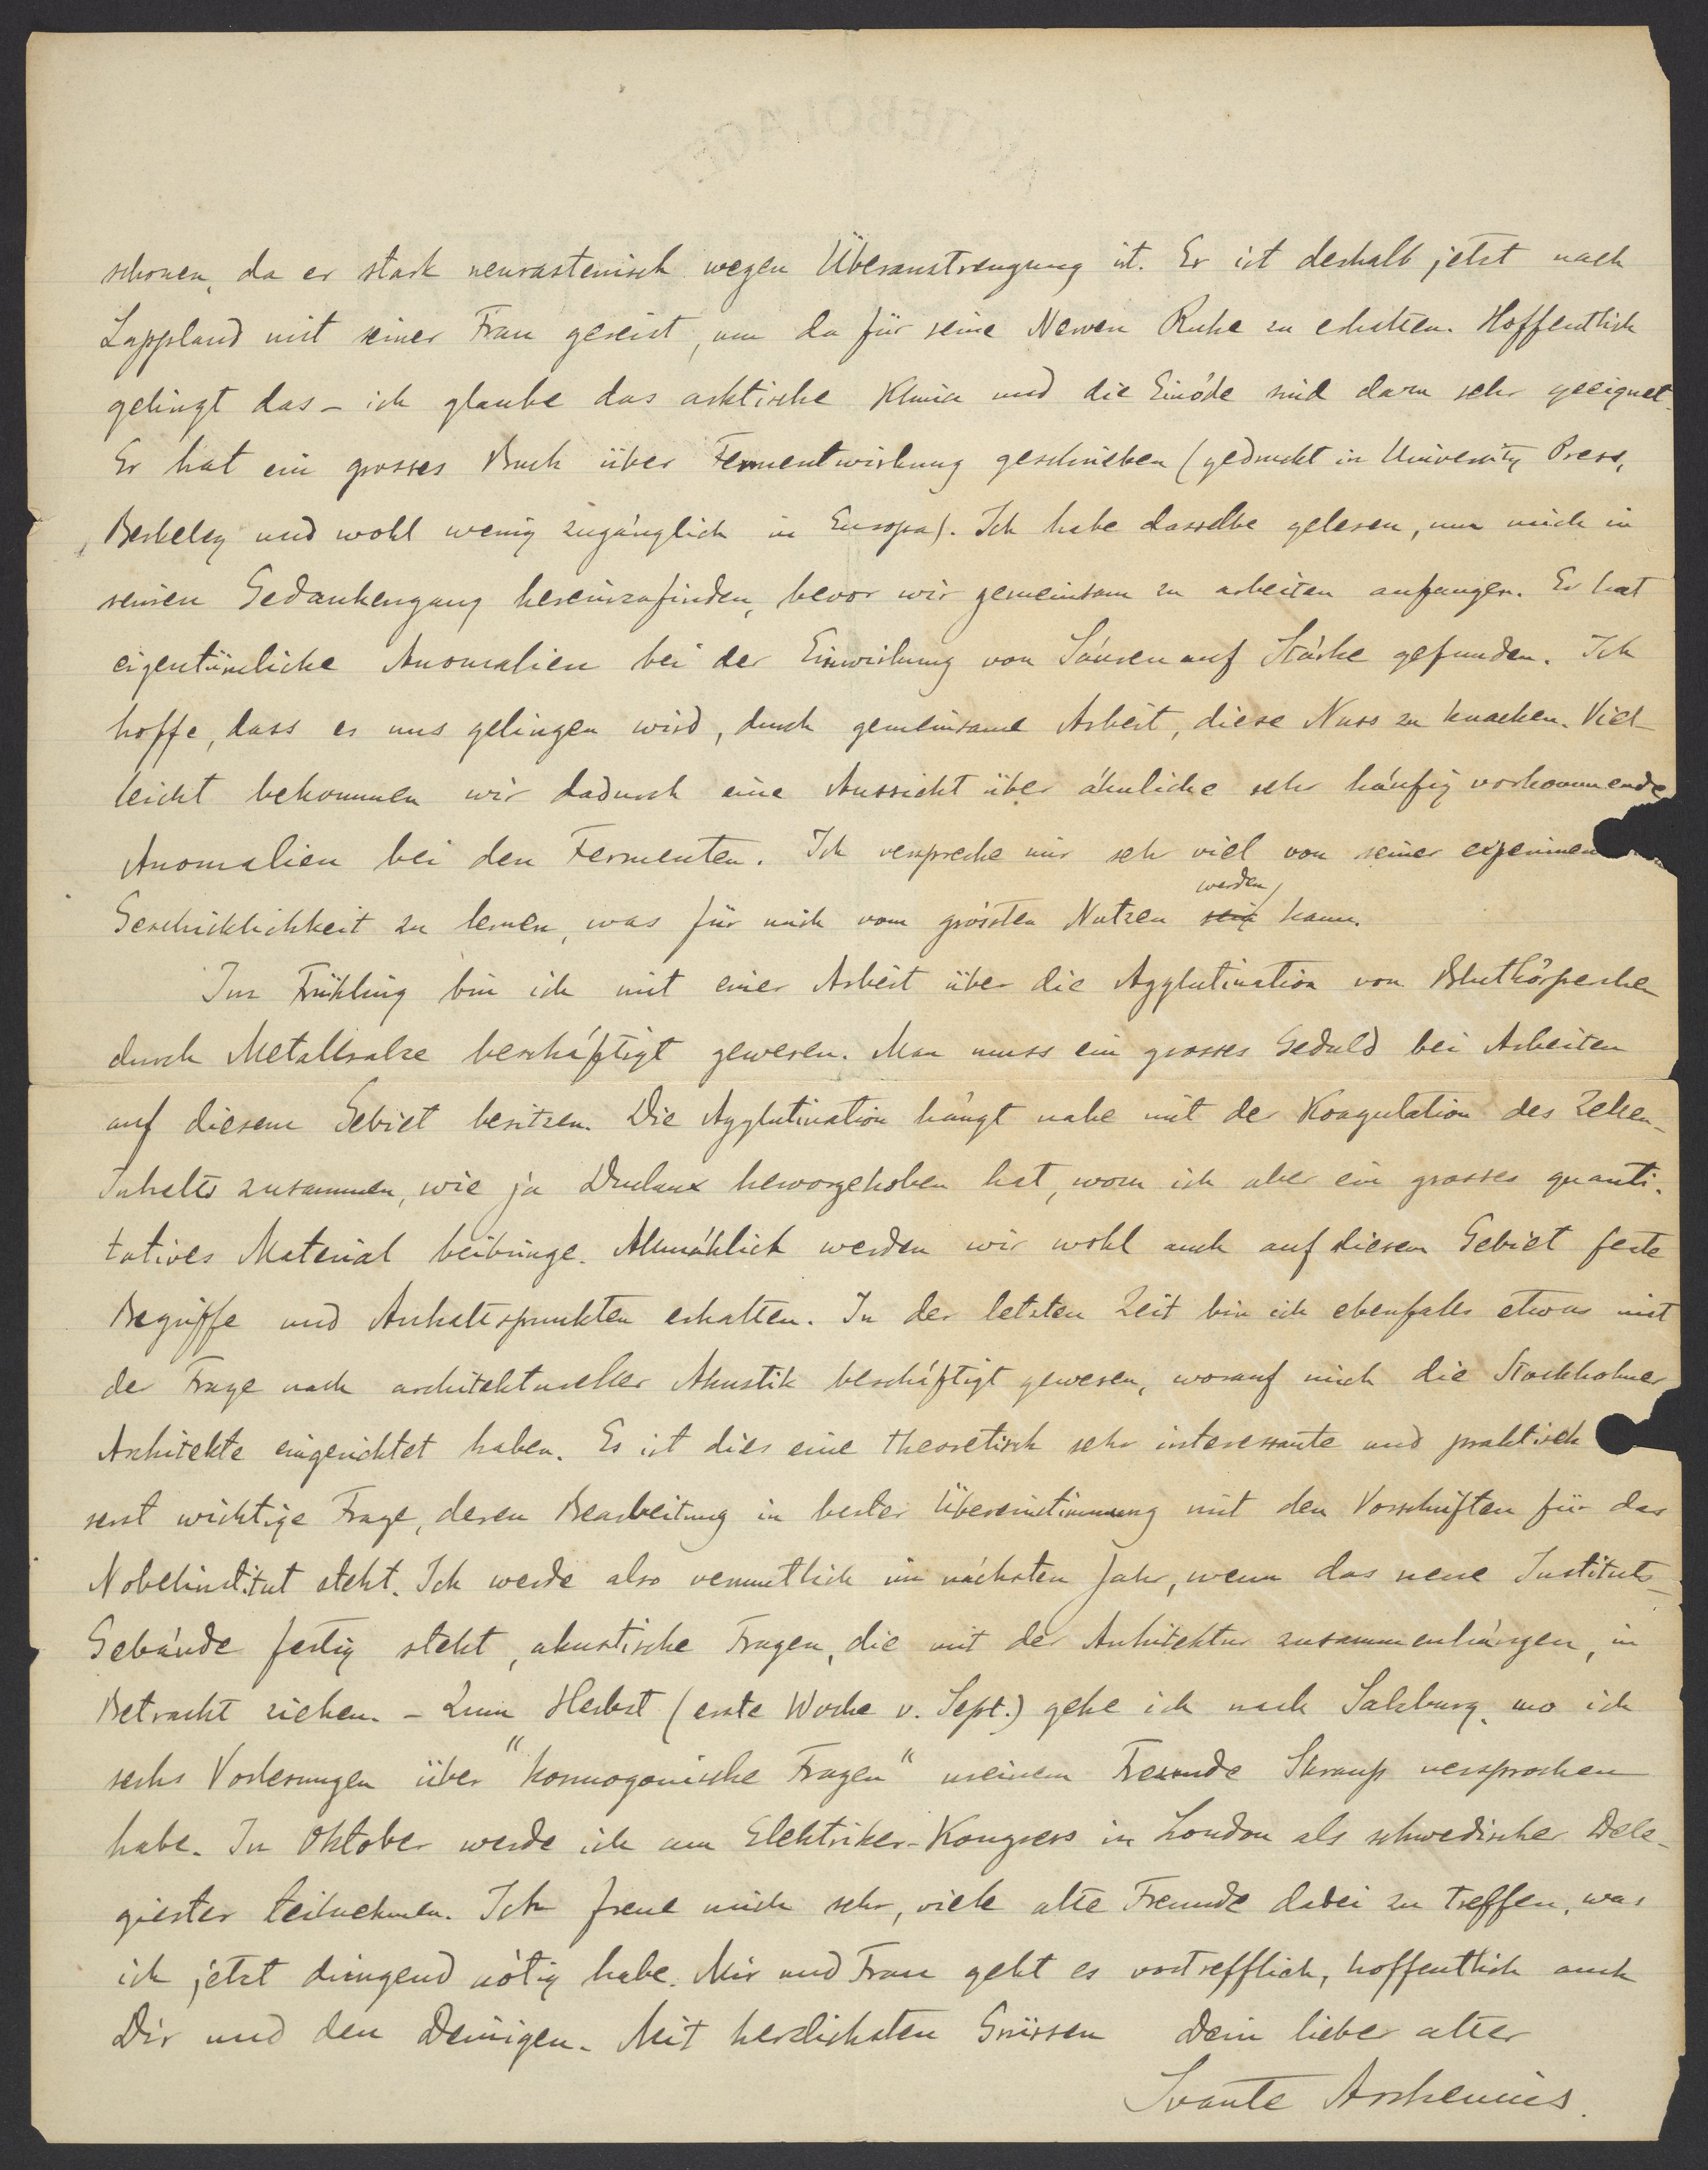 schonen, da er stark neurastenisch wegen Überanstrengung ist. Er ist deshalb jetzt nach
Lappland mit seiner Frau gereist, um da für seine Nerven Ruhe zu erhalten. Hoffentlich
gelingt das – ich glaube das arktische Klima und die Einöde sind dazu sehr geeignet.
Er hat ein grosses Buch über Fermentwirkung geschrieben (gedruckt in University Press,
Berkeley und wohl wenig zugänglich in Europa). Ich habe dasselbe gelesen, um mich in
seinen Gedankengang hereinzufinden, bevor wir gemeinsam zu arbeiten anfangen. Er hat
eigentümliche Anomalien bei der Einwirkung von Säuren auf Stärke gefunden. Ich
hoffe, dass es uns gelingen wird, durch gemeinsame Arbeit, diese Nuss zu knacken. Viel
leicht bekommen wir dadurch eine Aussicht über ähnliche sehr häufig vorkommende
Anomalien bei den Fermenten. Ich verspreche mir sehr viel von seiner experimen
werden
Geschicklichkeit zu lernen, was für mich vom grössten Nutzen sein kann.
Im Frühling bin ich mit einer Arbeit über die Agglutination von Blutkörperchen
durch Metallsalze beschäftigt gewesen. Man muss ein grosses Geduld bei Arbeiten
auf diesem Gebiet besitzen. Die Agglutination hängt nahe mit der Koagulation des Zellen-
Inhalts zusammen, wie ja Duclaux hervorgehoben hat, wozu ich aber ein grosses quanti-
tatives Material beibringe. Allmählich werden wir wohl auch auf diesem Gebiet feste
Begriffe und Anhaltspunkten erhalten. In der letzten Zeit bin ich ebenfalls etwas mit
der Frage nach architektureller Akustik beschäftigt gewesen, worauf mich die Stockholmer
Architekte eingerichtet haben. Es ist dies eine theoretisch sehr interessante und praktisch
serst wichtige Frage, deren Bearbeitung in bester Übereinstimmung mit den Vorschriften für das
Nobelinstitut steht. Ich werde also vermutlich im nächsten Jahr, wenn das neue Instituts-
Gebäude fertig steht, akustische Fragen, die mit der Architektur zusammenhängen, in
Betracht ziehen. – Zum Herbst (erste Woche v. Sept.) gehe ich nach Salzburg, wo ich
sechs Vorlesungen über "kosmogonische Fragen" meinem Freunde Skraup versprochen
habe. In Oktober werde ich am Elektriker-Kongress in London als schwedischer Dele-
gierter teilnehmen. Ich freue mich sehr, viele alte Freunde dabei zu treffen, was
ich jetzt dringend nötig habe. Mir und Frau geht es vortrefflich, hoffentlich auch
Dir und den Deinigen. Mit herzlichsten Grüssen Dein lieber alter
Svante Arrhenius.